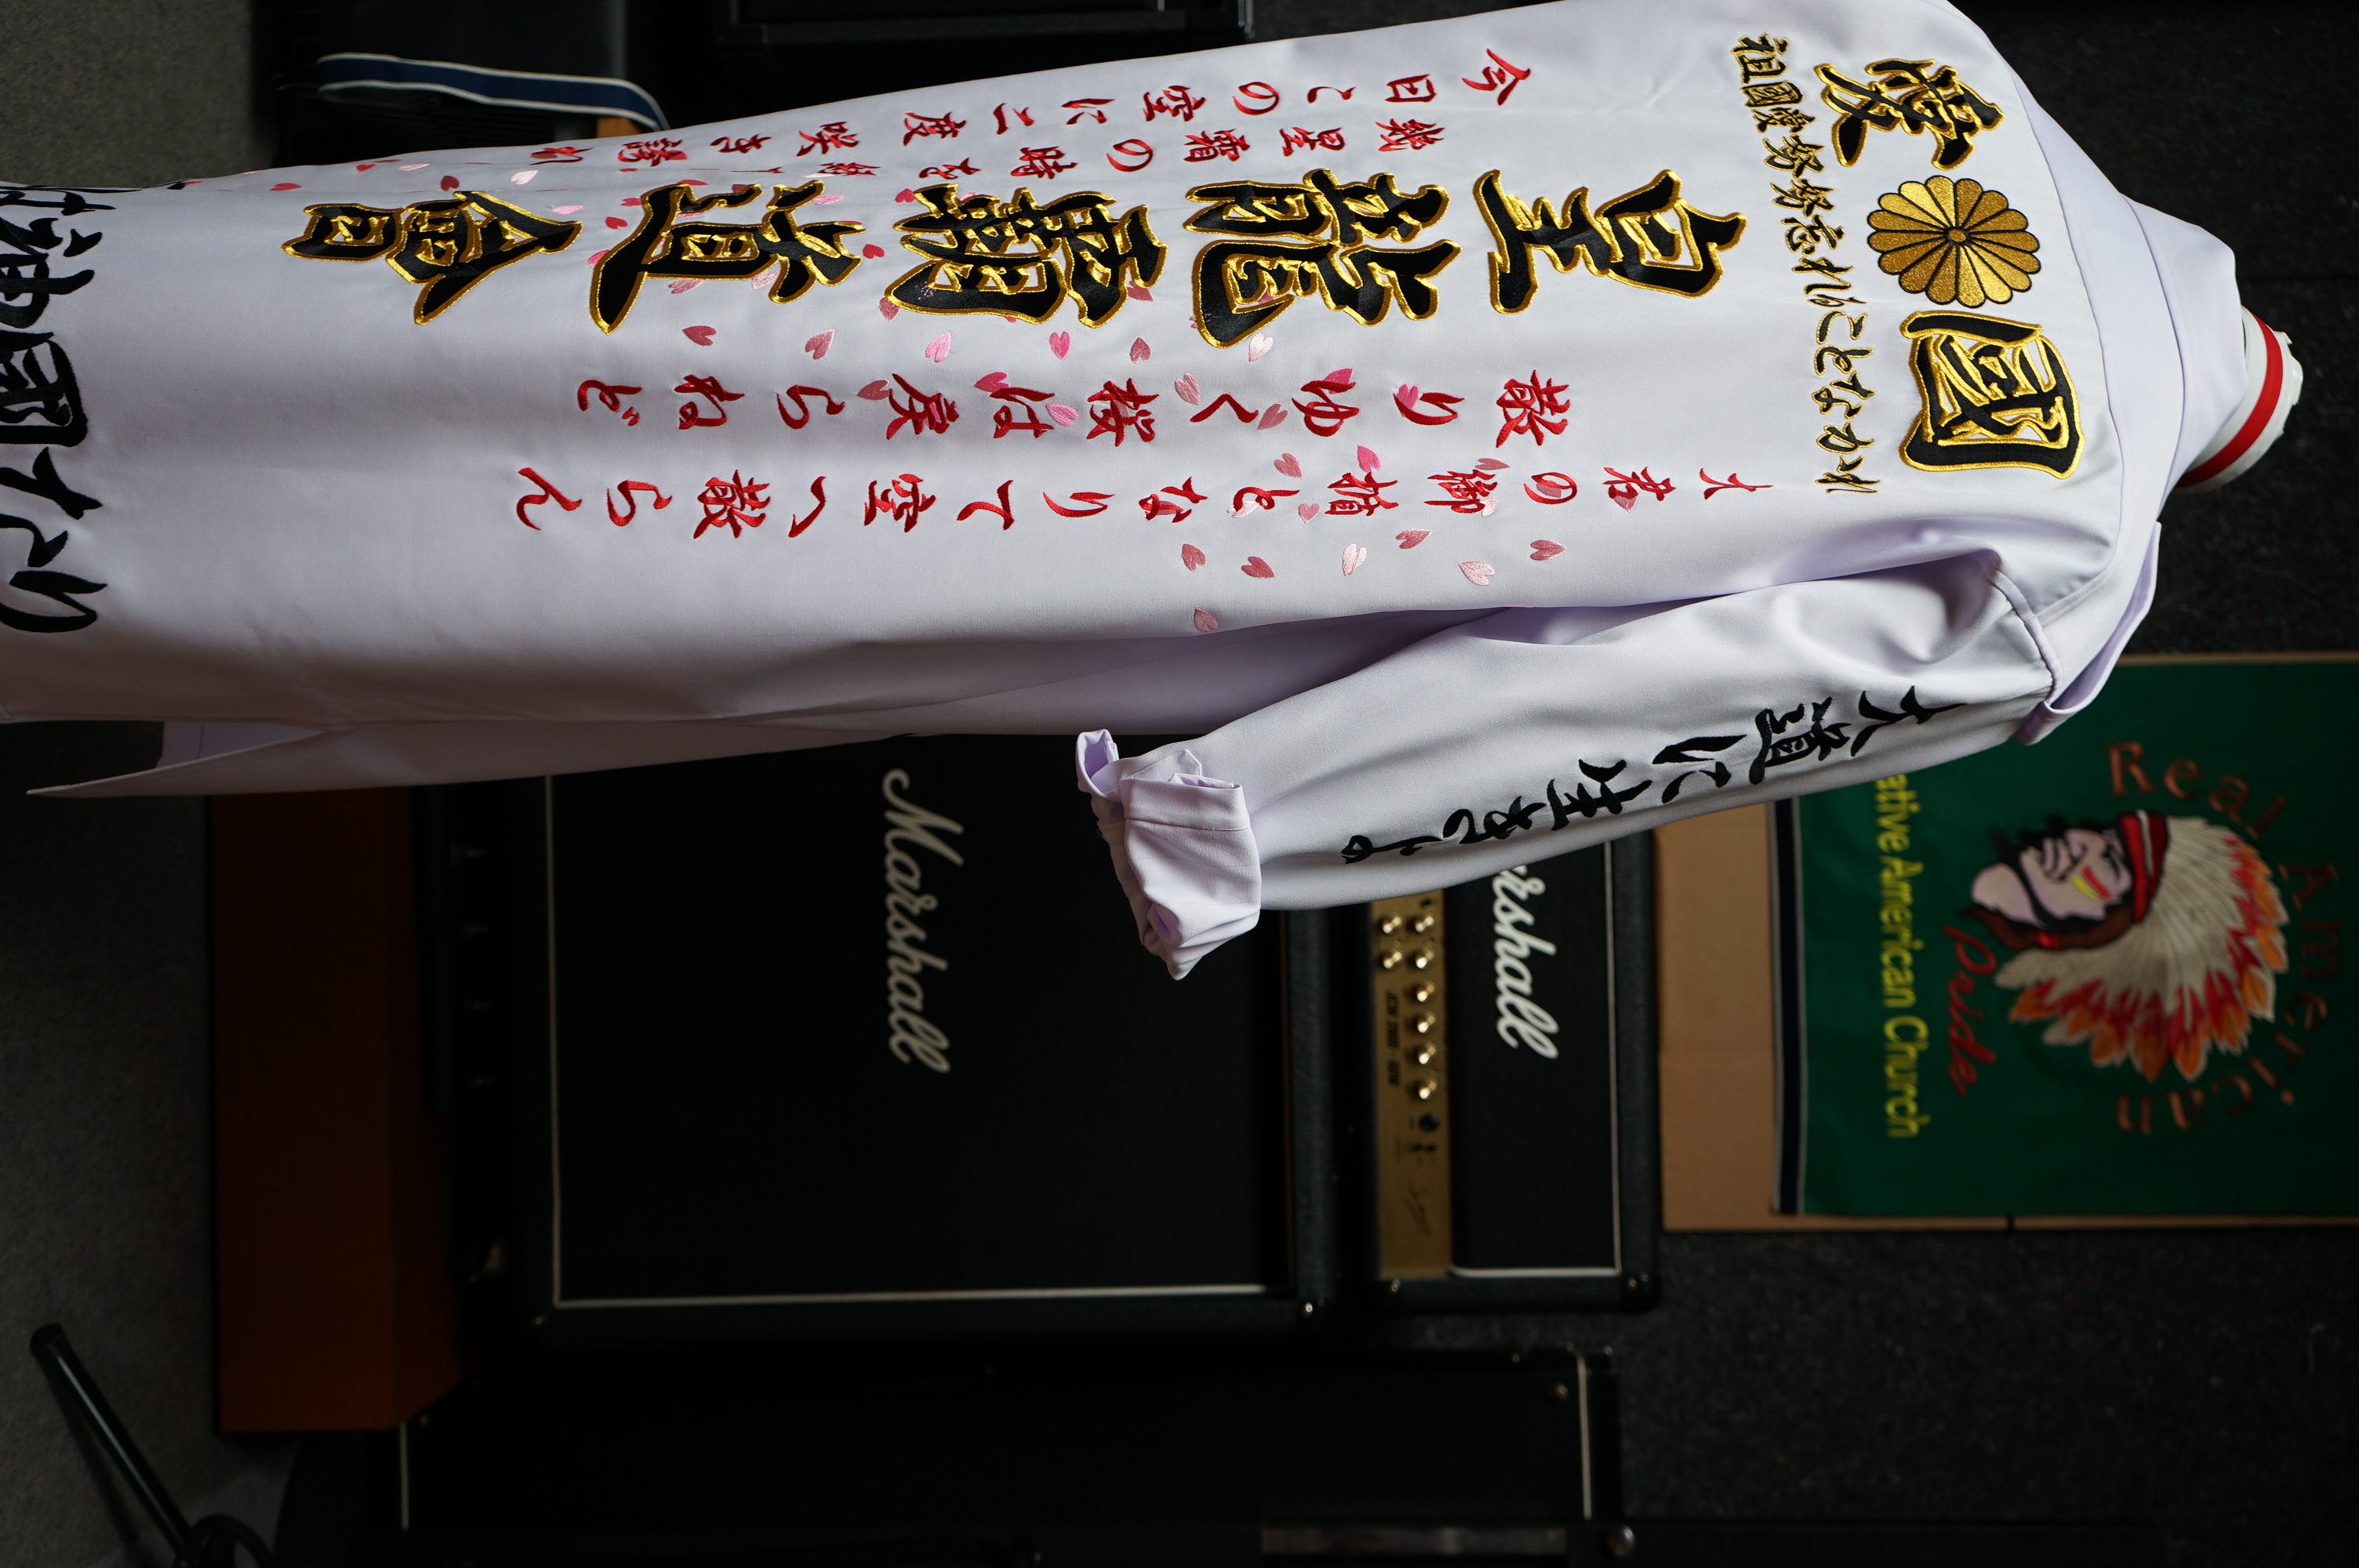 愛國
祖國愛努努忘れることなかれ
大君の御楯となりて空へ散らん
散りゆく桜は戻らねど
皇龍霸道會
幾星霜の時を
今日この空に二度咲き誇れ
は神國なり
大道に
Marshall
rshall
Real American
Pride
ative American Church